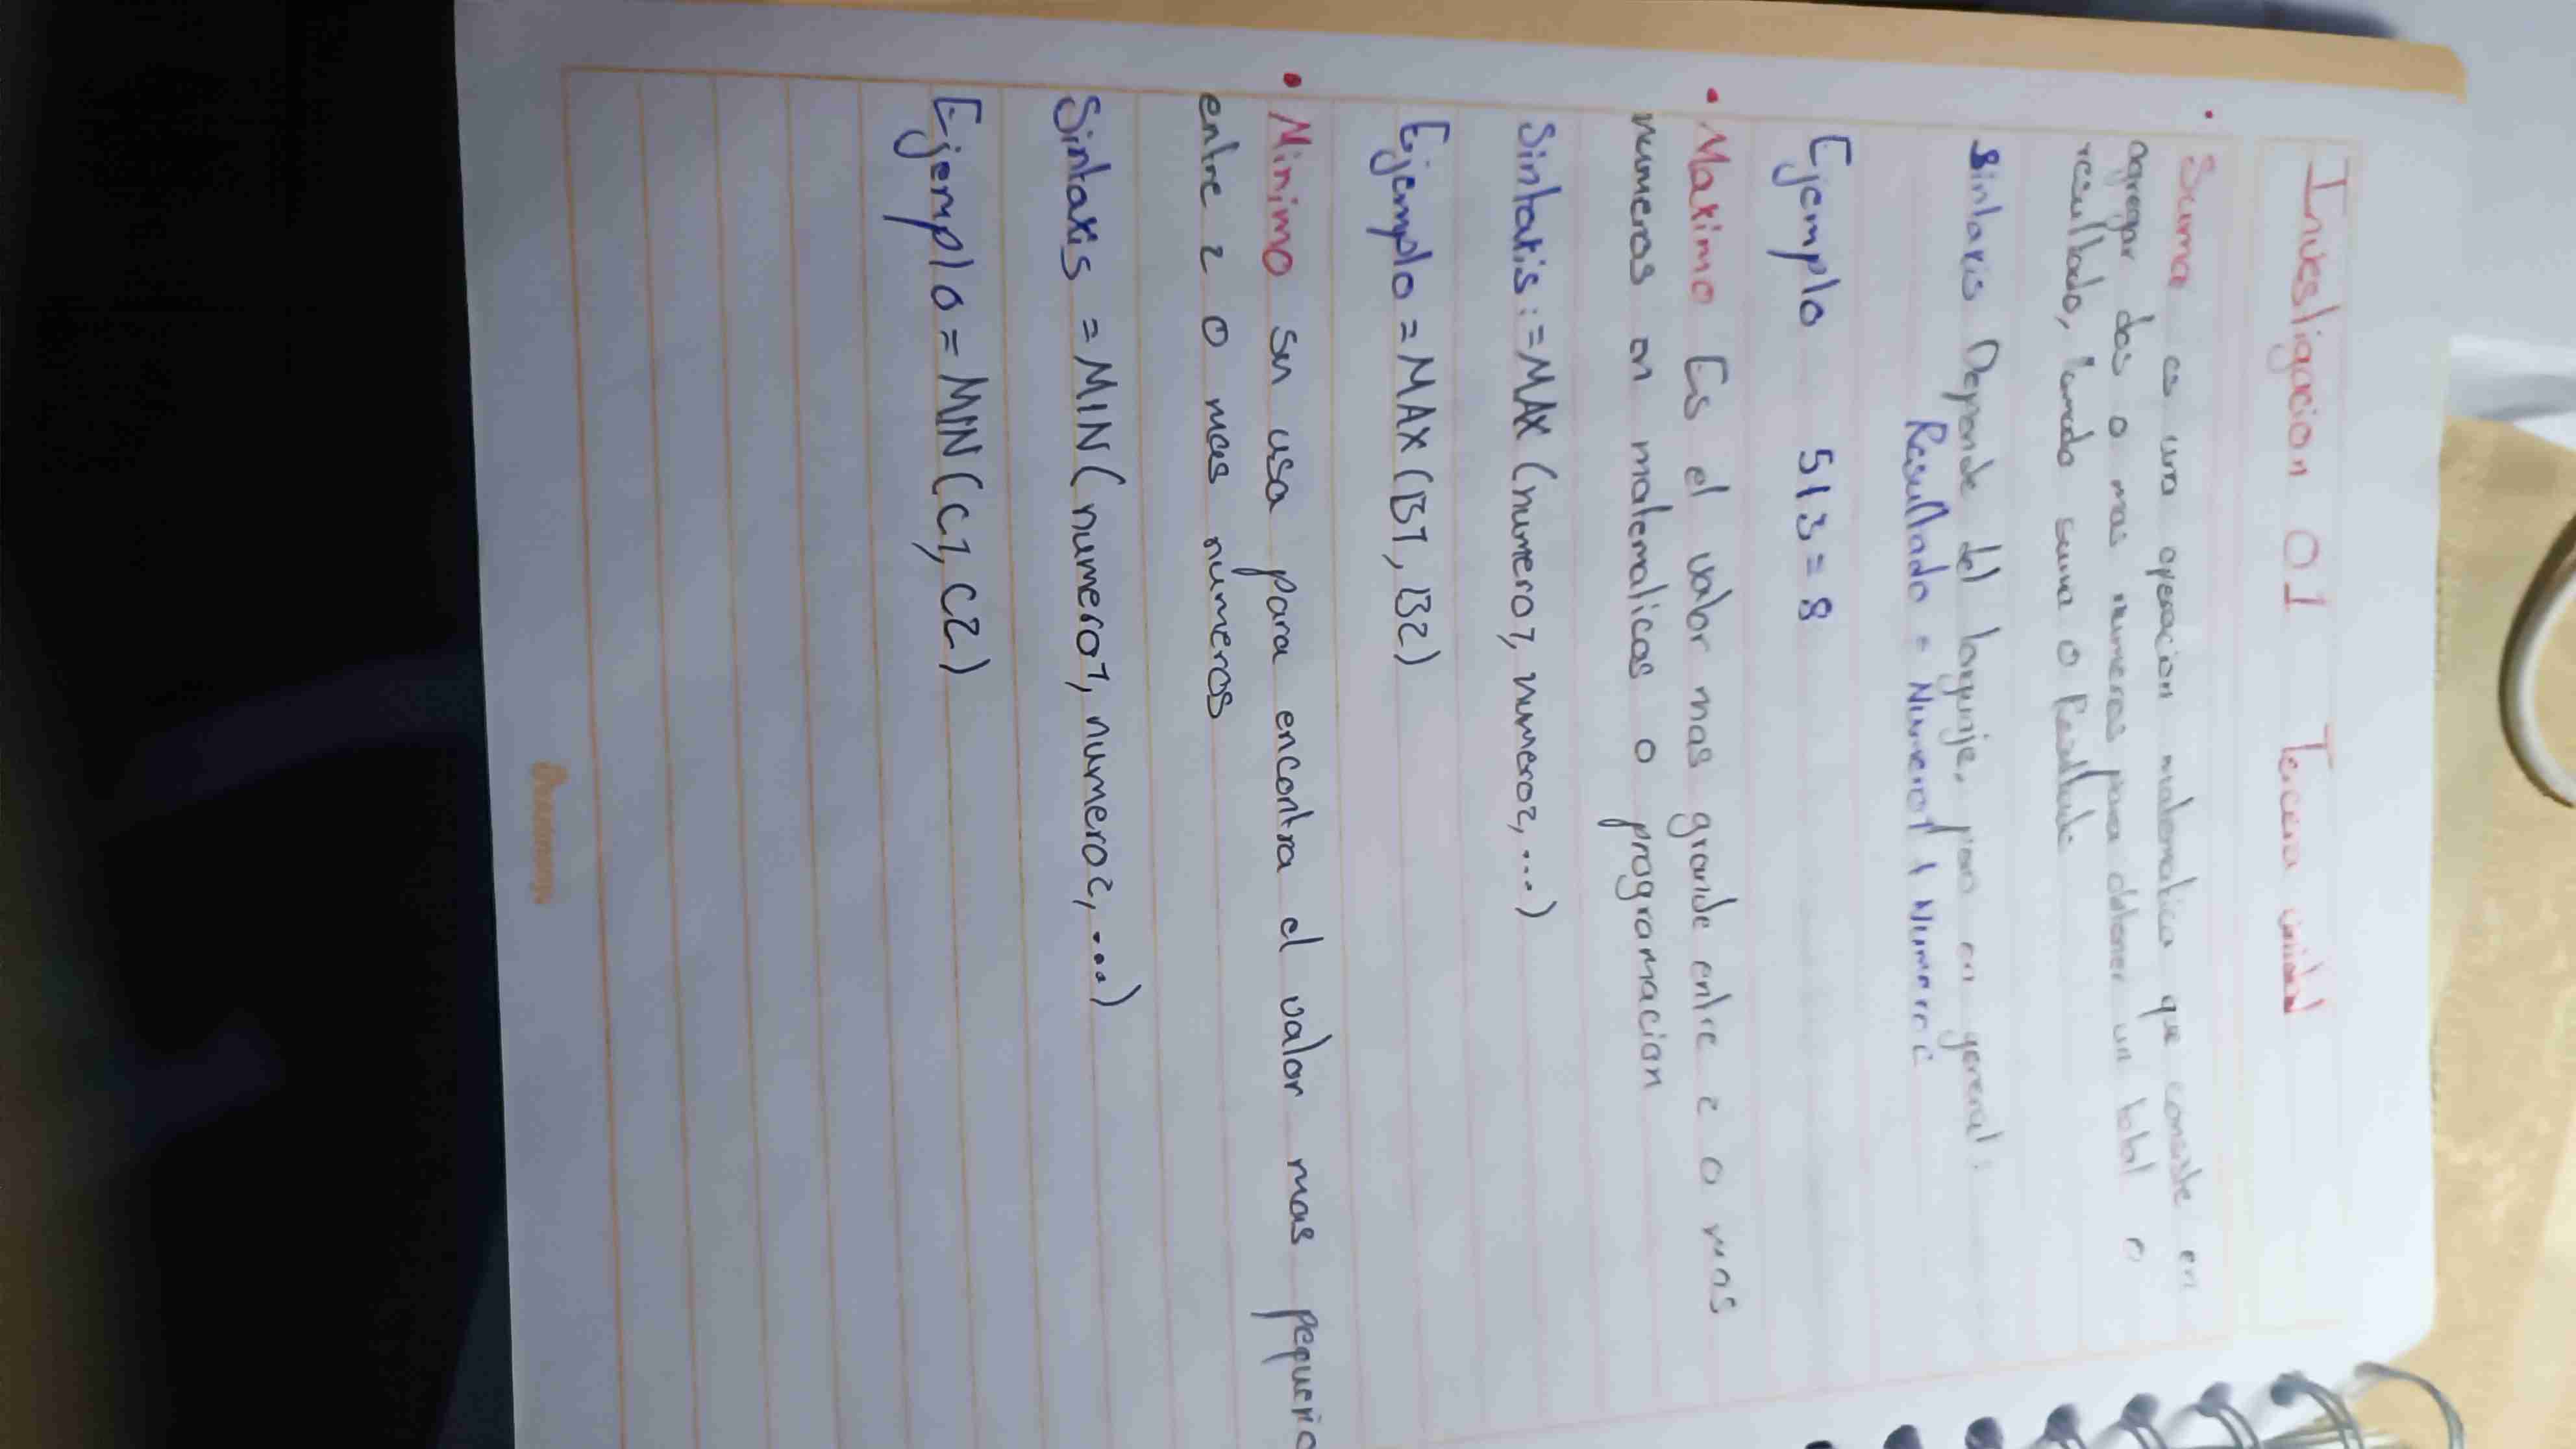 Investigacion 01 Tercera unidad
• Suma es una operacion matematica que consiste en
agregar dos o mas numeros para obtener un total o
resultado, lamado suma o Resultado
Sintaxis Depende del languaje, pero en general:
Resultado = Numero1 + Numero2
Ejemplo 5+3=8
• Maximo Es el valor mas grande entre 2 o mas
numeros en matematicas o programacion
Sintaxis: =MAX (numero1, numero2,...)
Ejemplo =MAX (B1, B2)
• Minimo Su usa para encontra el valor mas pequeño
entre 2 o mas números
Sintaxis =MIN (numero1, numero2,...)
Ejemplo = MIN (C1, C2)